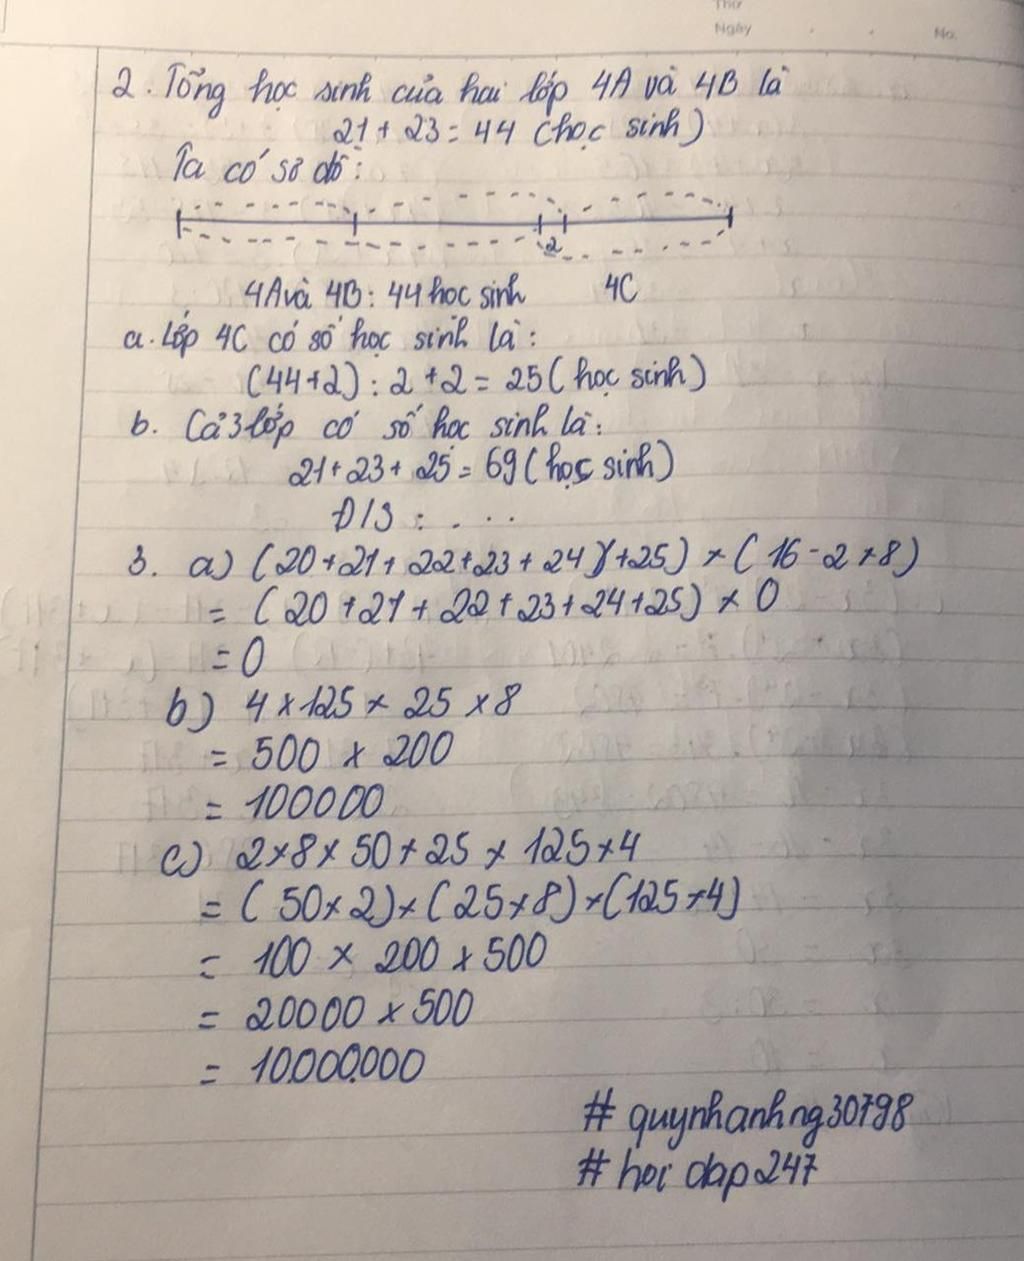 Thứ
Ngày
No.
2. Tổng học sinh của hai lớp 4A và 4B là
21 + 23 = 44 (học sinh)
Ta có sơ đồ:
2
4A và 4B: 44 học sinh 4C
a. Lớp 4C có số học sinh là:
(44+2) : 2 + 2 = 25 (học sinh)
b. Cả 3 lớp có số học sinh là:
21 + 23 + 25 = 69 (học sinh)
Đ/S : . . .
3. a) (20 + 21 + 22 + 23 + 24 + 25) × (16 - 2 × 8)
= (20 + 21 + 22 + 23 + 24 + 25) × 0
= 0
b) 4 × 125 × 25 × 8
= 500 × 200
= 100000
c) 2 × 8 × 50 × 25 × 125 × 4
= (50 × 2) × (25 × 8) × (125 × 4)
= 100 × 200 × 500
= 20000 × 500
= 10.000.000
# quynhanhng30798
# hoi dap 247